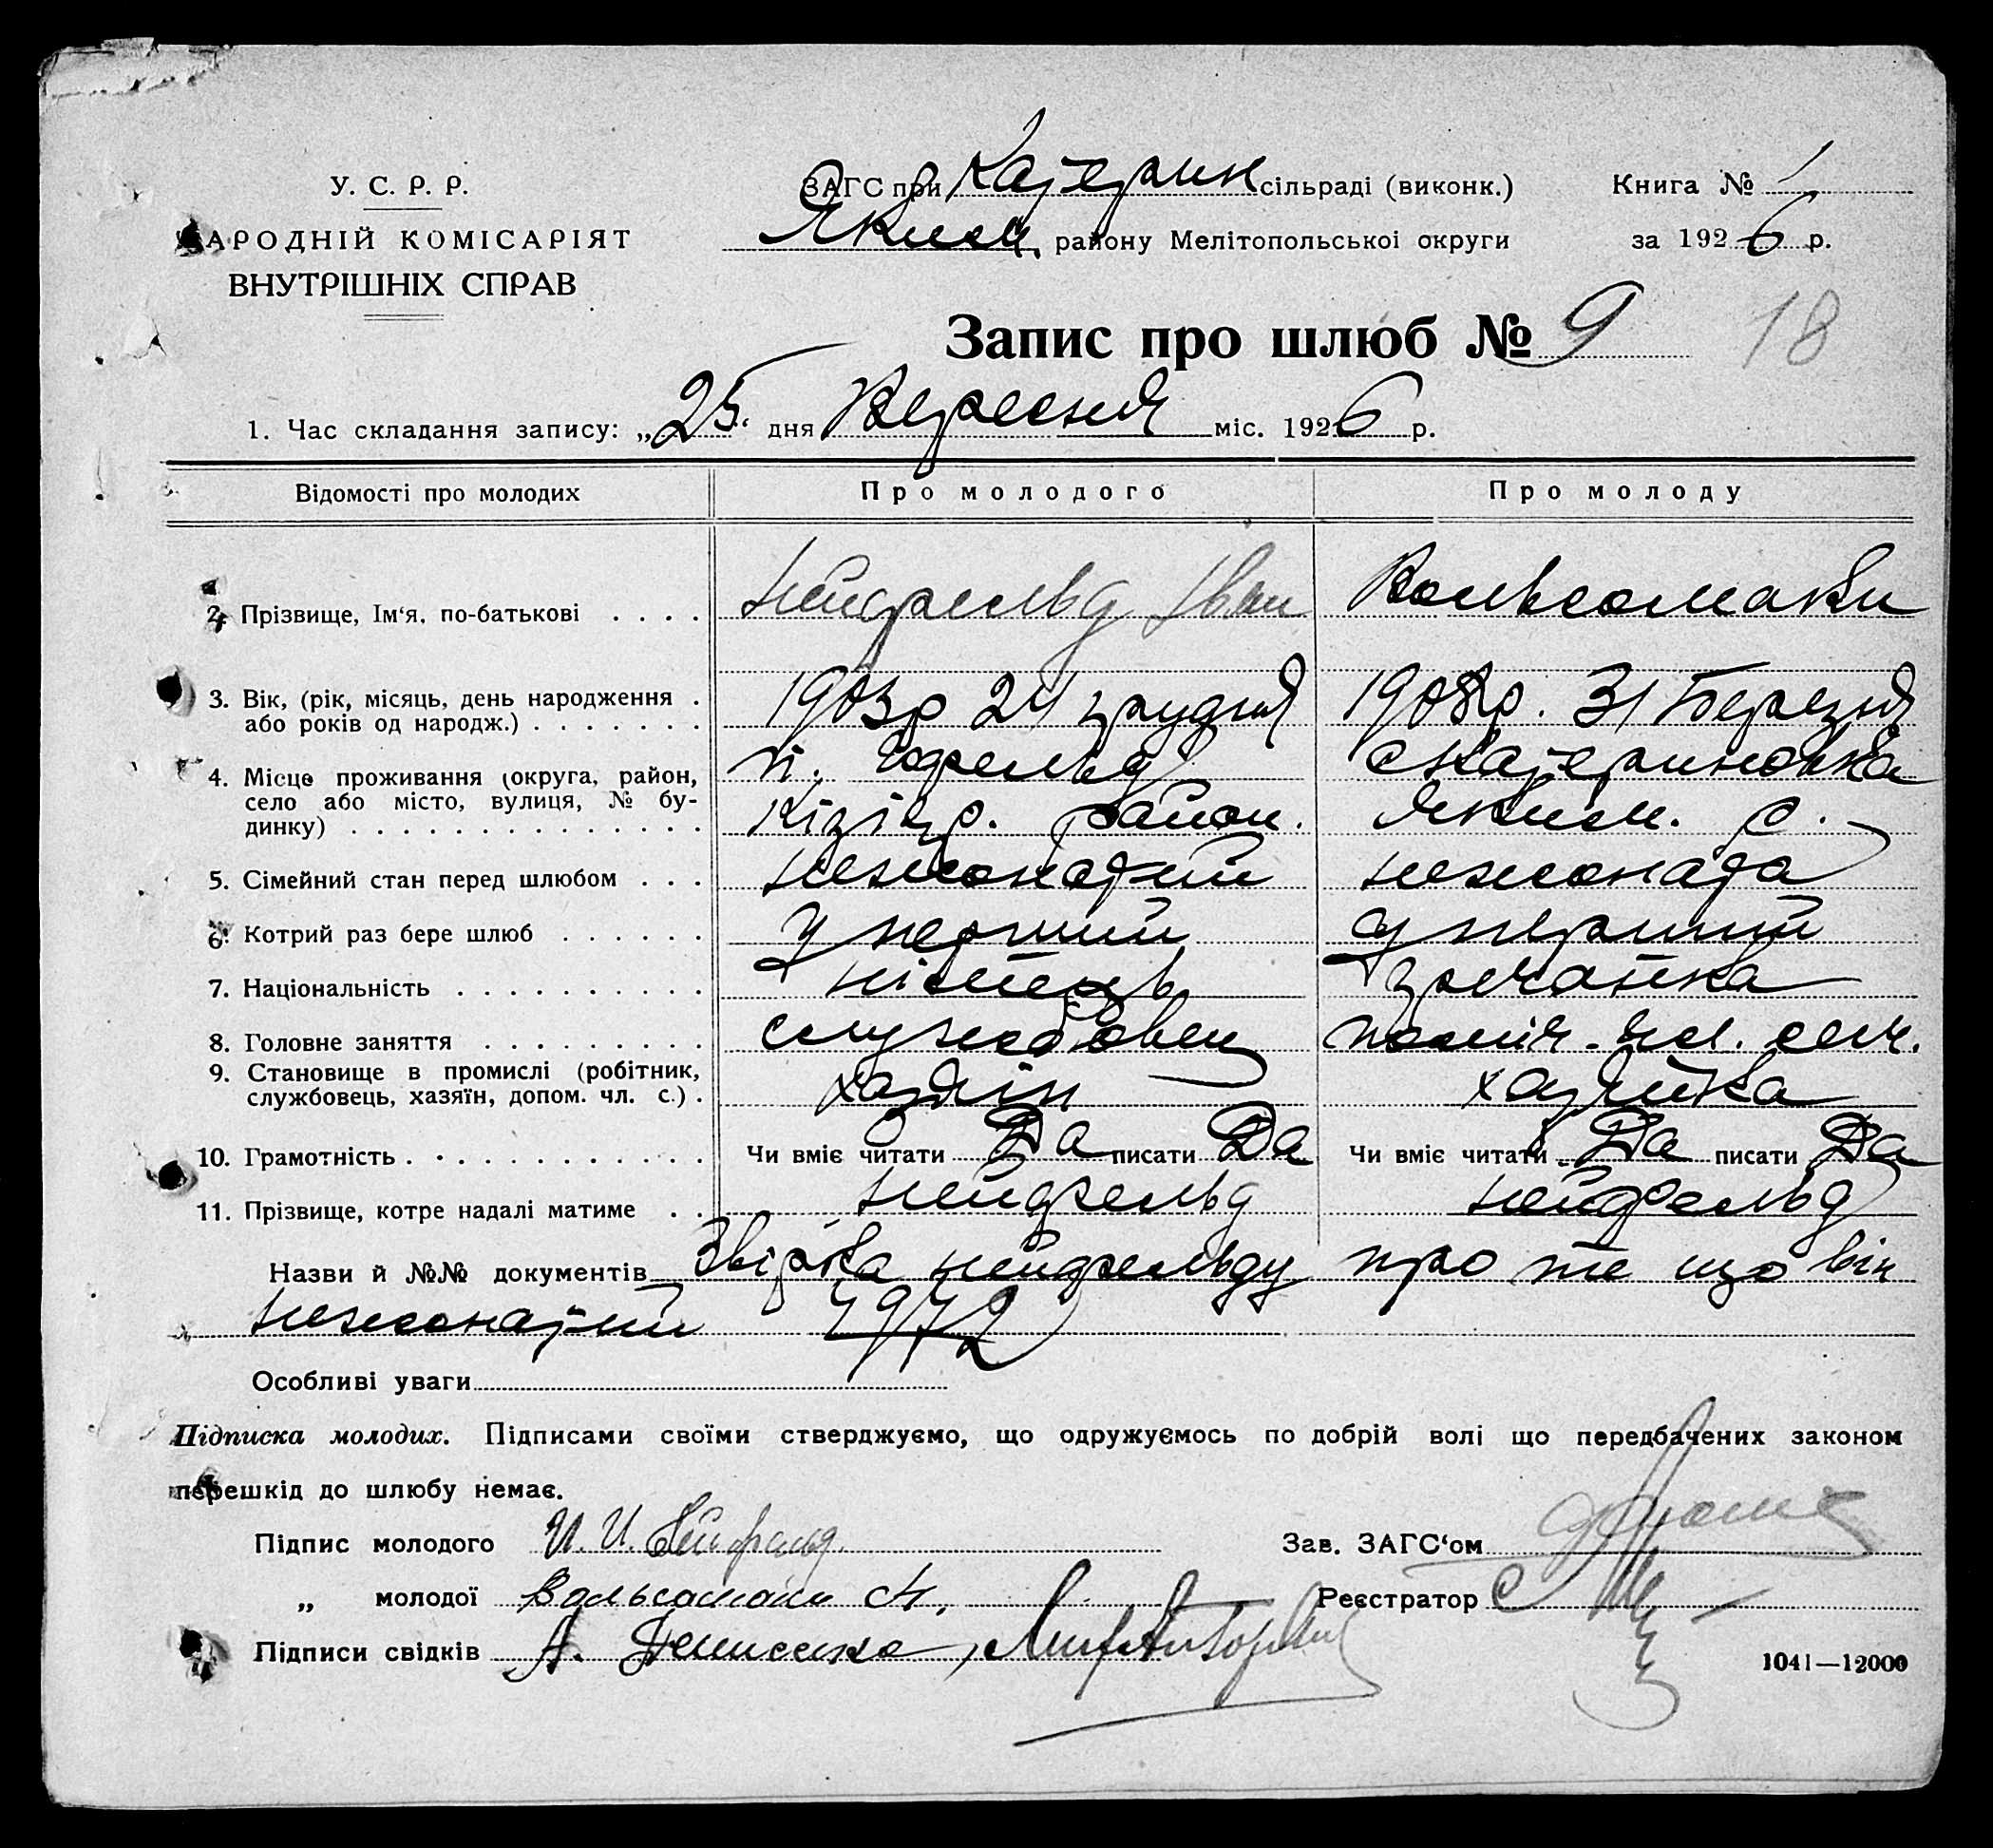 У. С. Р. Р.
НАРОДНІЙ КОМІСАРІЯТ
ВНУТРІШНІХ СПРАВ
ЗАГС при Катерин сільраді (виконк.) Книга № 1
Яким. району Мелітопольської округи за 1926 р.
Запис про шлюб № 9 18
1. Час складання запису: „25“ дня Вересня міс. 1926 р.
Відомості про молодих Про молодого Про молоду
2. Прізвище, Ім'я, по-батькові . . . . Нейфельд Іван Вольсомаки
3. Вік, (рік, місяць, день народження . 1903р 24 грудня 1908р. 31 Березня
або років од народж.) . . . . . . .
4. Місце проживання (округа, район, Катериновка
село або місто, вулиця, № бу- район. Яким. р.
динку) . . . . . . . . . . . . . .
5. Сімейний стан перед шлюбом . . . нежонатий нежоната
6. Котрий раз бере шлюб . . . . . . у перший у перший
7. Національність . . . . . . . . . . німець
8. Головне заняття . . . . . . . . . службовец
9. Становище в промислі (робітник, хазяін хазяйка
службовець, хазяїн, допом. чл. с.) .
10. Грамотність . . . . . . . . . . . . Чи вміє читати Да писати Да Чи вміє читати Да писати Да
11. Прізвище, котре надалі матиме . . Нейфельд Нейфельд
Назви й №№ документів Звірка Нейфельду про те що він
нежонатий
Особливі уваги
Підписка молодих. Підписами своїми стверджуємо, що одружуємось по добрій волі що передбачених законом
перешкід до шлюбу немає.
Підпис молодого И. И. Нейфельд. Зав. ЗАГС'ом
„ молодої Вальсамаки Реєстратор
Підписи свідків А. Денисенко,
1041—12000